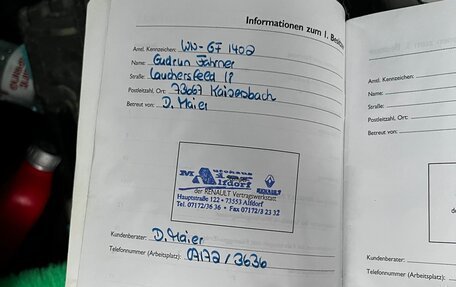 Informationen zum 1. Besitzer
Amtl. Kennzeichen: WN-GF 1402
Name: Gudrun Fahrner
Straße:
Postleitzahl, Ort: 73667 Kaisersbach
Betreut von: D. Maier
Autohaus
Maier
Alfdorf
RENAULT
der RENAULT Vertragswerkstatt
Hauptstraße 122 • 73553 Alfdorf
Tel. 07172/36 36 • Fax 07172/3 22 32
Kundenberater: D. Maier
Telefonnummer (Arbeitsplatz): 07172 / 3636
Amtl. Kennzeichen:
Name:
Straße:
Postleitzahl, Ort:
Betreut von:
Kundenberater:
Telefonnummer (Arbeitsplatz):